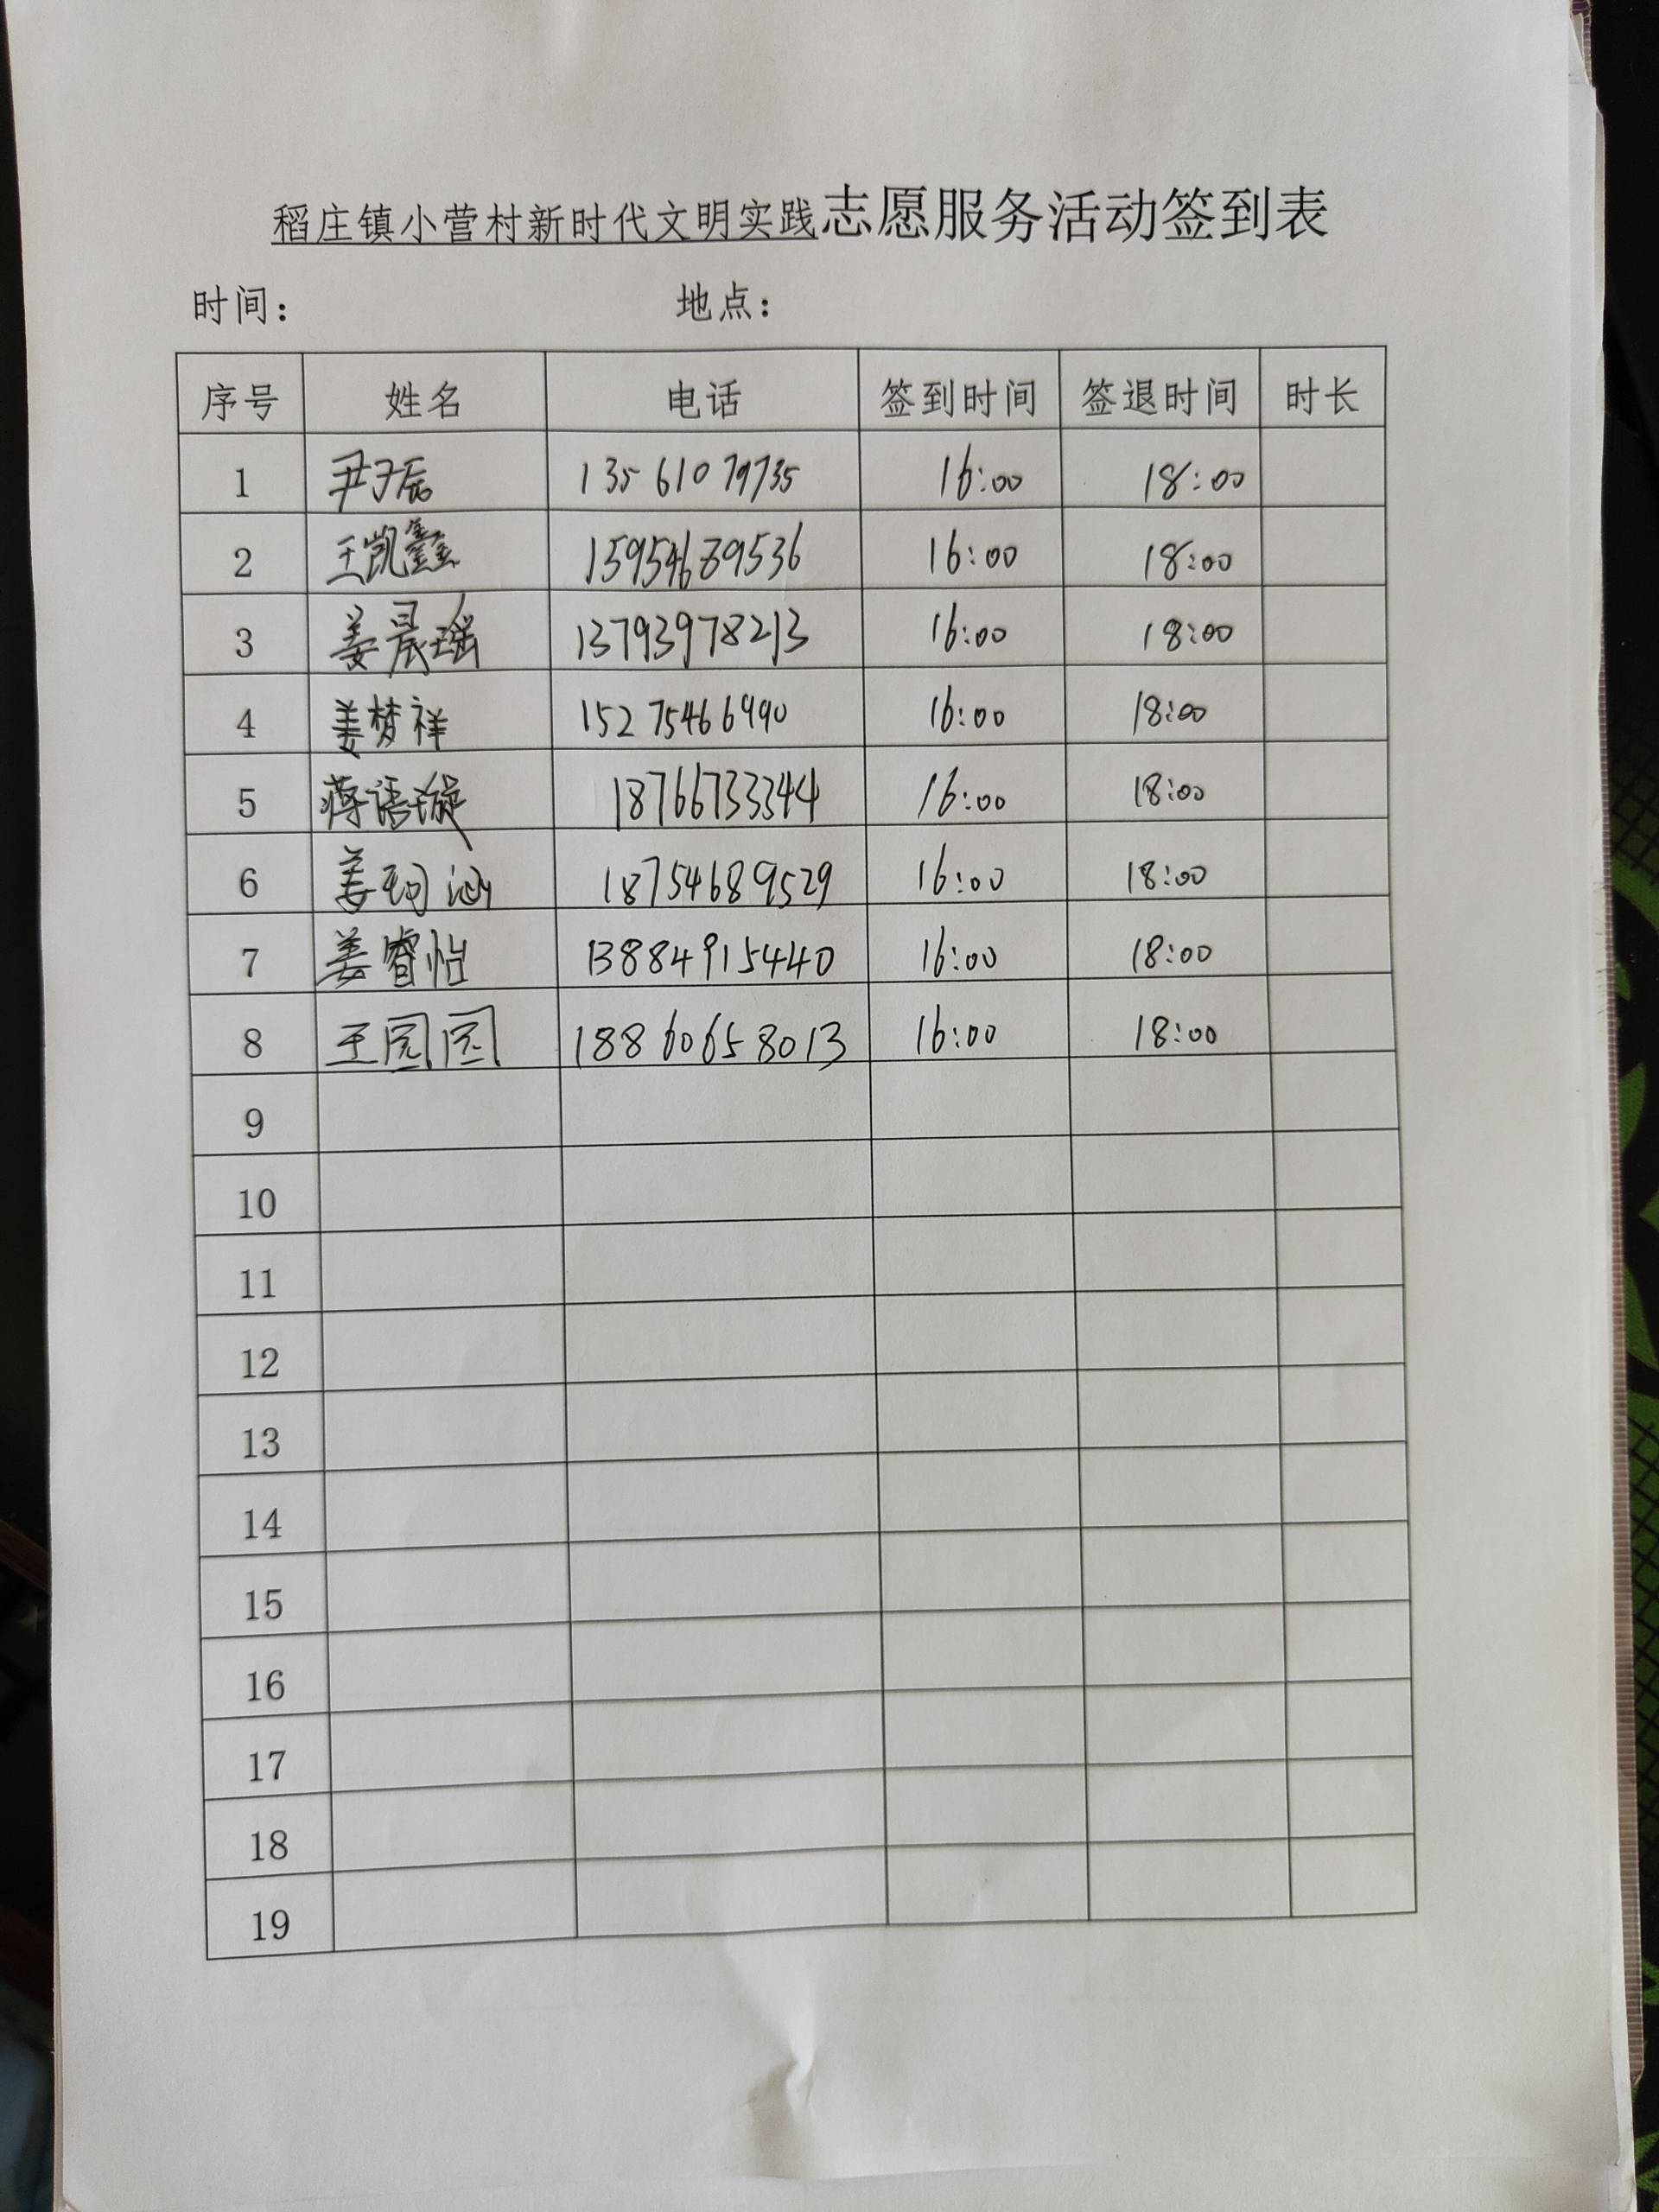 稻庄镇小营村新时代文明实践志愿服务活动签到表
时间： 地点：
序号 姓名 电话 签到时间 签退时间 时长
1 尹子辰 13561079735 16:00 18:00
2 王凯鑫 15954689536 16:00 18:00
3 姜晨瑶 13793978213 16:00 18:00
4 姜梦祥 15275466990 16:00 18:00
5 蒋语璇 18766733344 16:00 18:00
6 姜珂涵 18754689529 16:00 18:00
7 姜睿怡 13884915440 16:00 18:00
8 王园园 18860658013 16:00 18:00
9
10
11
12
13
14
15
16
17
18
19